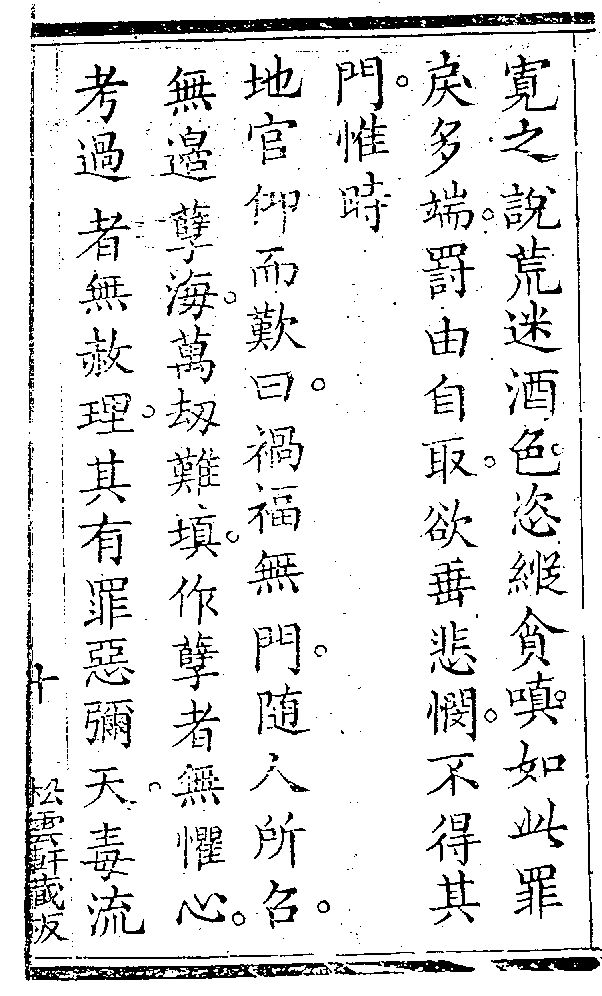 寃之說荒迷酒色。恣縱貪嗔。如此罪
戾多端。罰由自取。欲垂悲憫。不得其
門。惟時
地官仰而歎曰。禍福無門。隨人所召。
無邊孽海。萬劫難填。作孽者無懼心。
考過者無赦理。其有罪惡彌天。毒流
十
松雲軒藏板